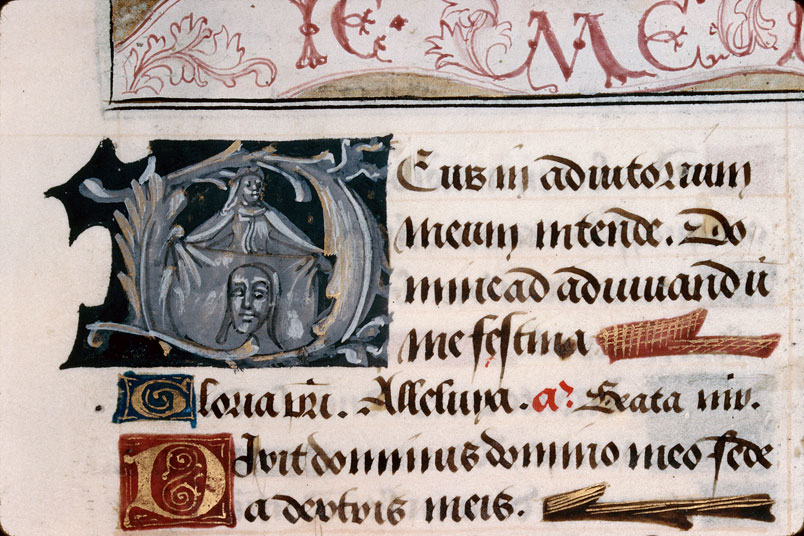 Deus in adiutorium
meum intende. Do
mine ad adiuuandu
me festina
Gloria pri. Alleluya. a? Beata viv.
Dixit dominus domino meo sede
a dextris meis.